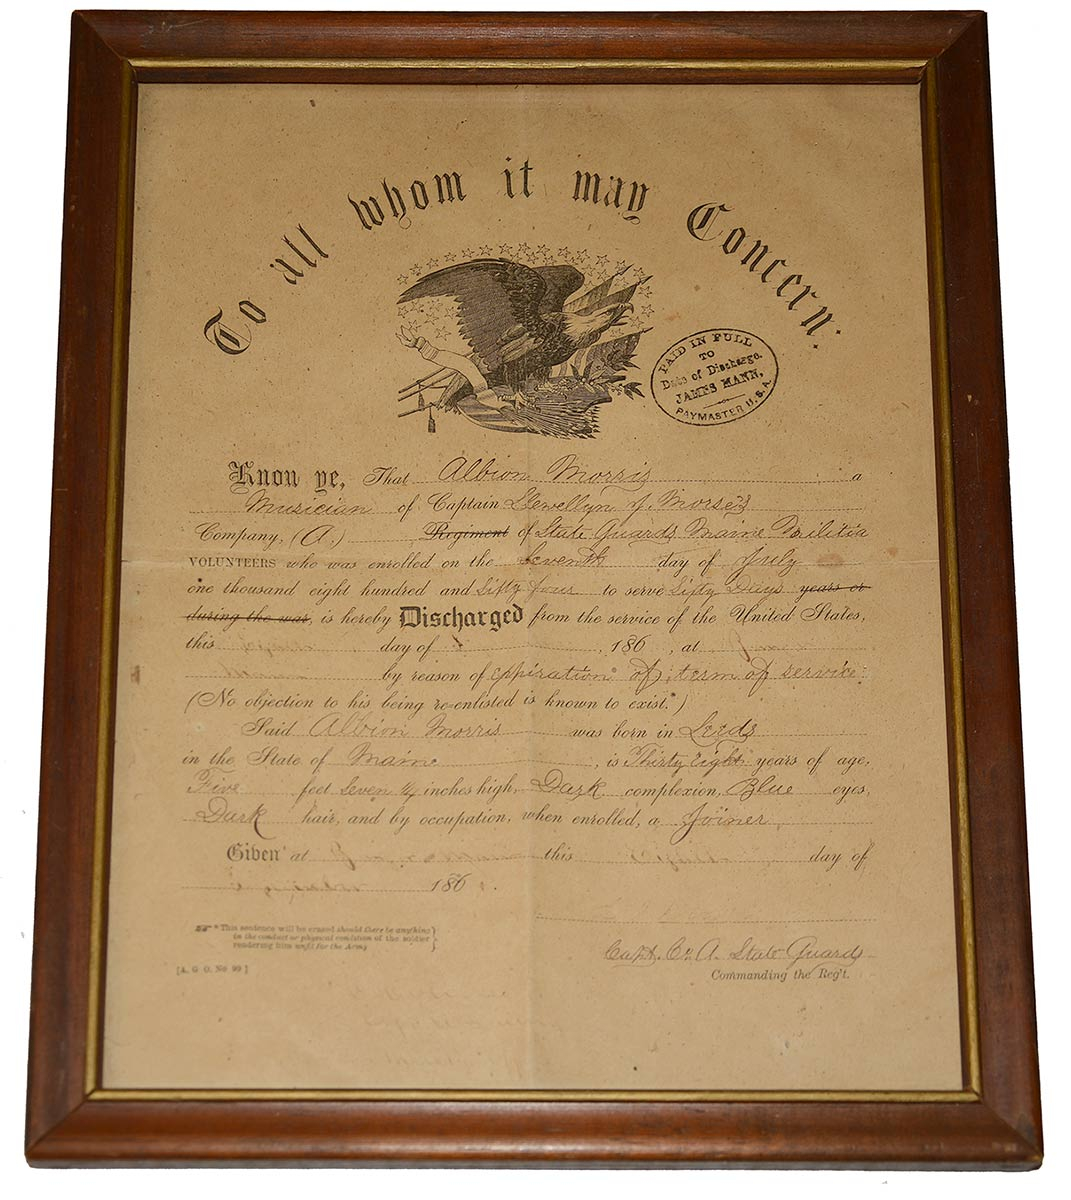 To all whom it may Concern:
PAID IN FULL
TO
Date of Discharge.
JAMES MANN,
PAYMASTER U.S.A.
Know ye, That Albion Morris a
Musician of Captain Llewellyn J. Morse's
Company, (A.) Regiment of State Guards Maine Militia
VOLUNTEERS who was enrolled on the Seventh day of July
one thousand eight hundred and Sixty four to serve Sixty Days years or
during the war, is hereby Discharged from the service of the United States,
this day of , 186 , at
by reason of expiration of term of service
(No objection to his being re-enlisted is known to exist.*)
Said Albion Morris was born in Leeds
in the State of Maine , is Thirty Eight years of age,
Five feet Seven ½ inches high, Dark complexion, Blue eyes,
Dark hair, and by occupation, when enrolled, a Joiner
Given at this day of
186 .
*This sentence will be erased should there be anything
in the conduct or physical condition of the soldier
rendering him unfit for the Army
[A. G O. No 99]
Capt. Co. A. State Guards
Commanding the Reg't.